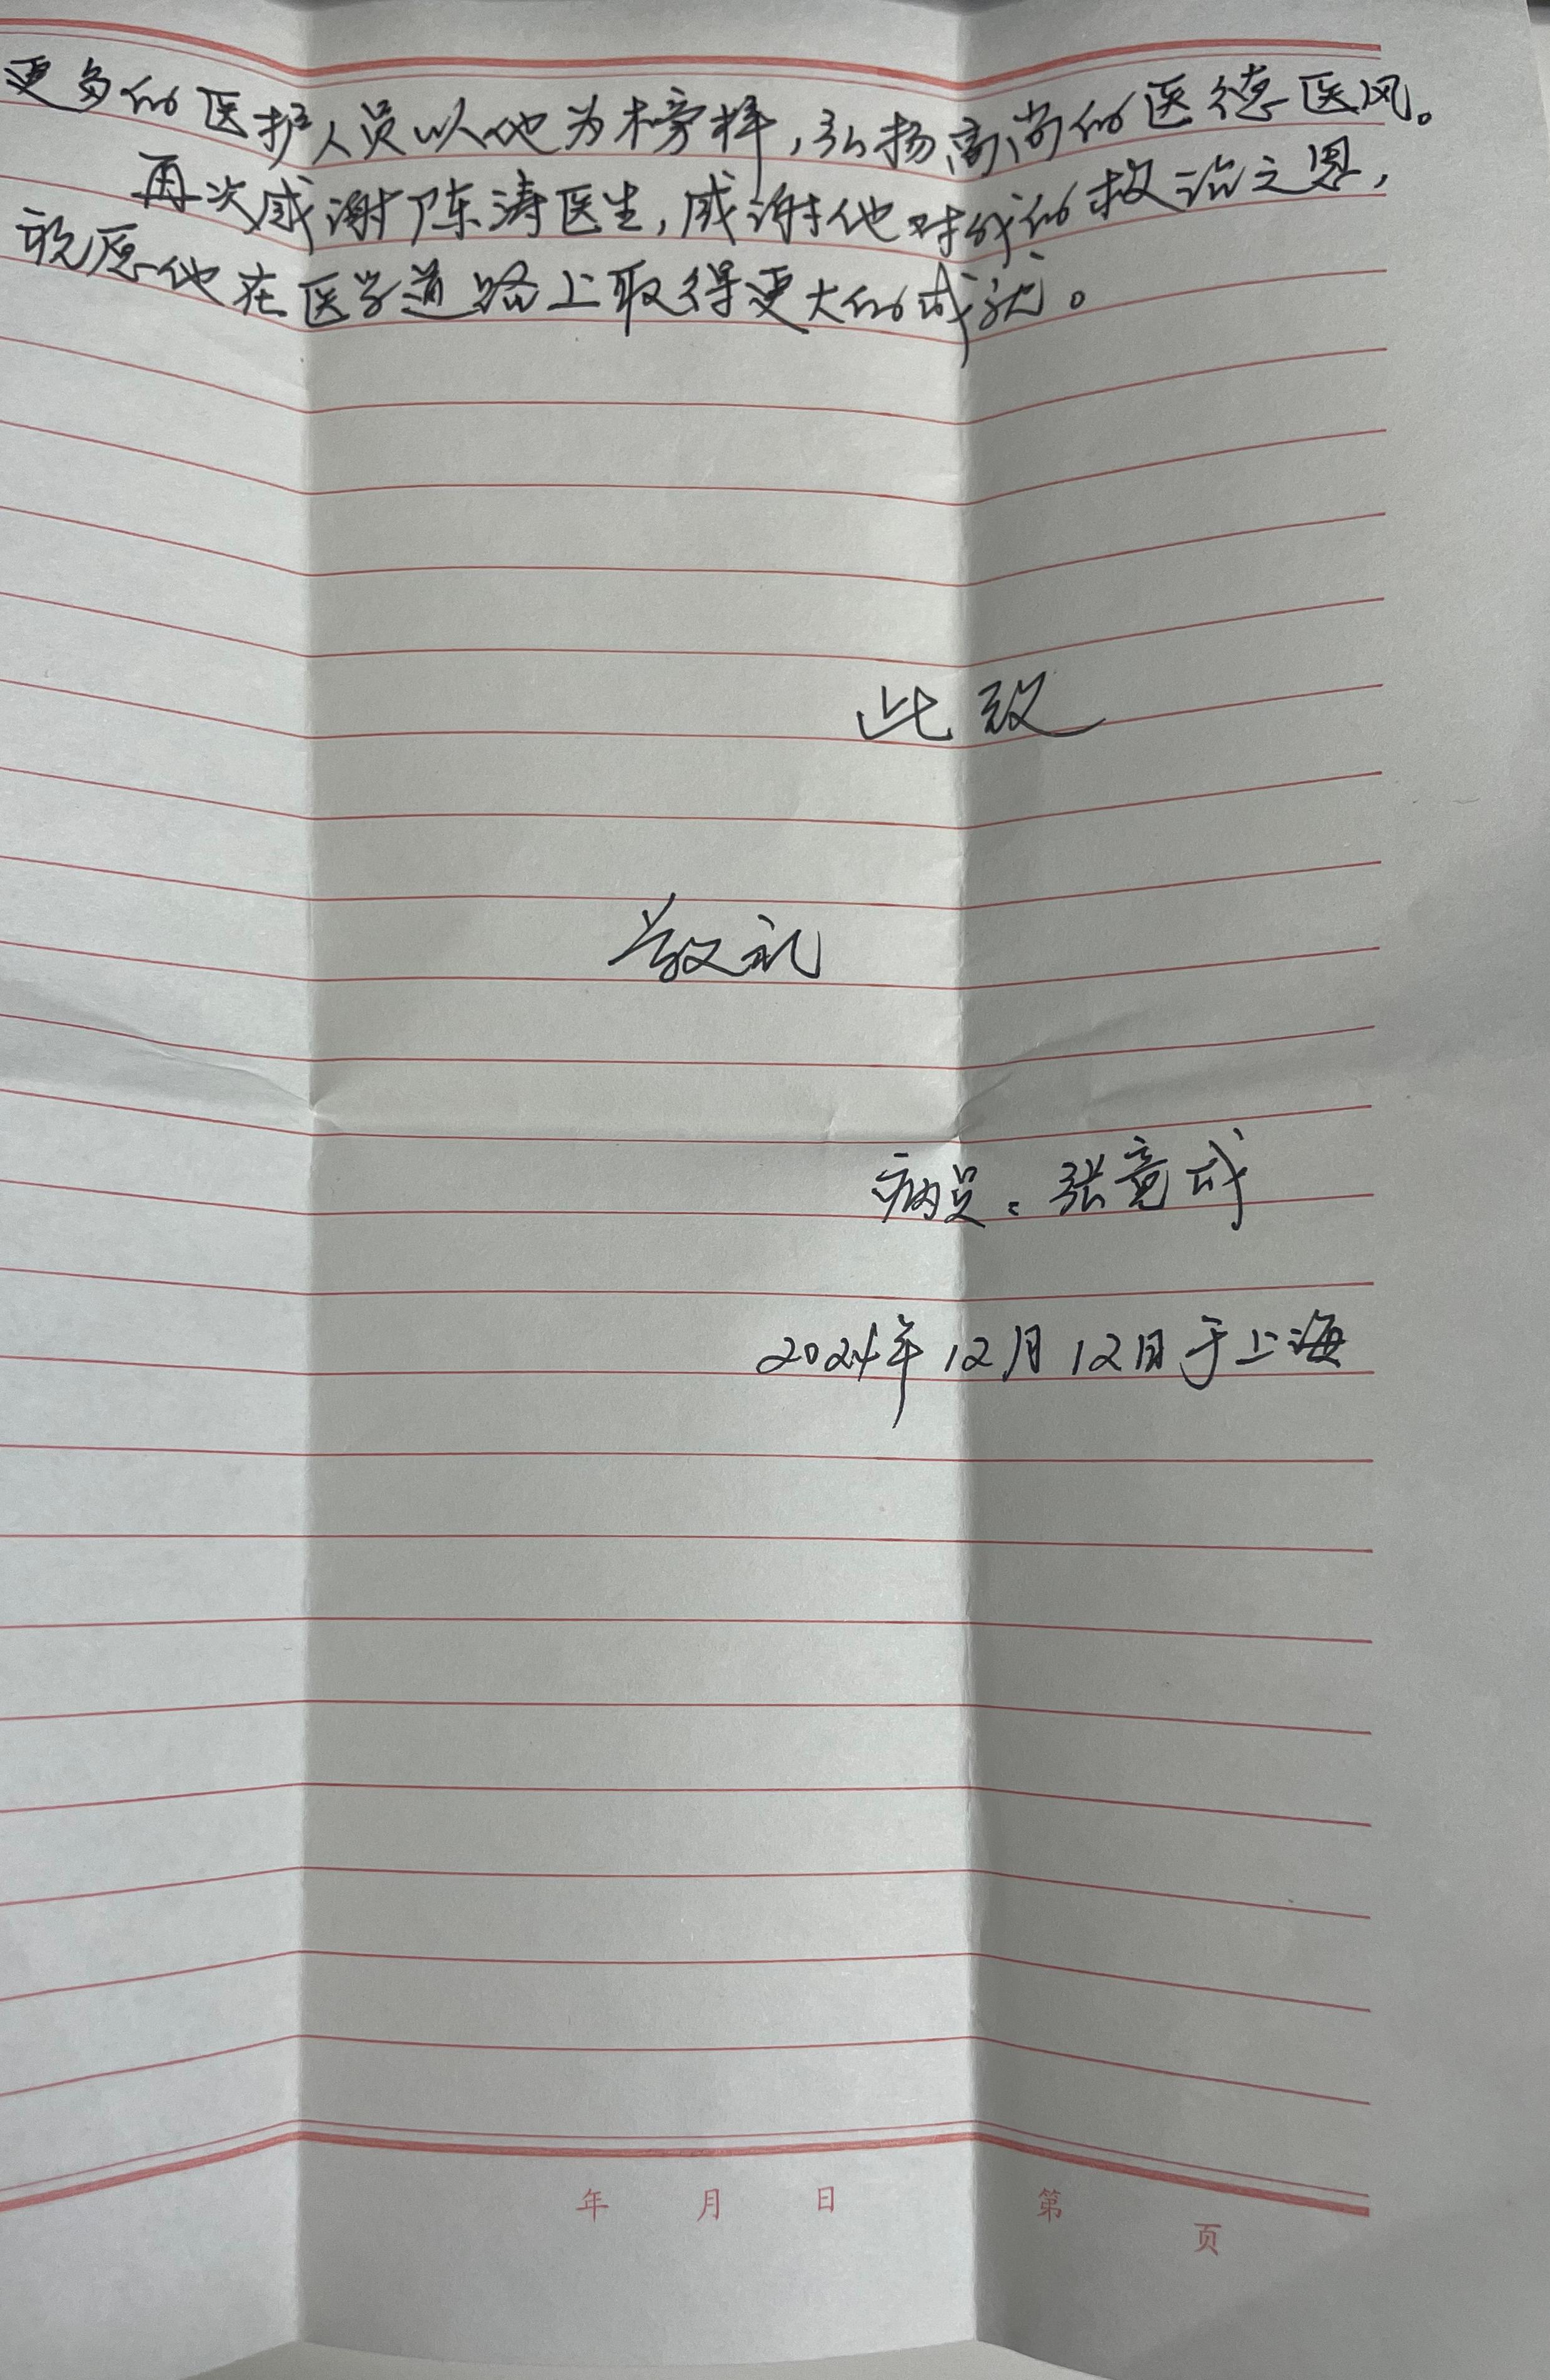 更多的医护人员以他为榜样，弘扬高尚的医德医风。
再次感谢陈涛医生，感谢他对我的救治之恩，
祝愿他在医学道路上取得更大的成就。
此致
敬礼
病员：张竟成
2024年12月12日于上海
年 月 日 第 页